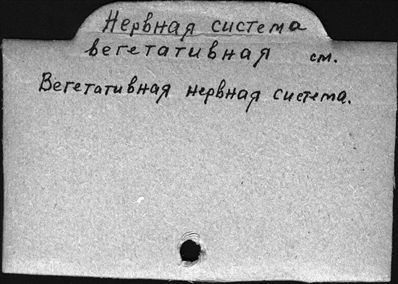 Нервная система
вегетативная см.
Вегетативная нервная система.